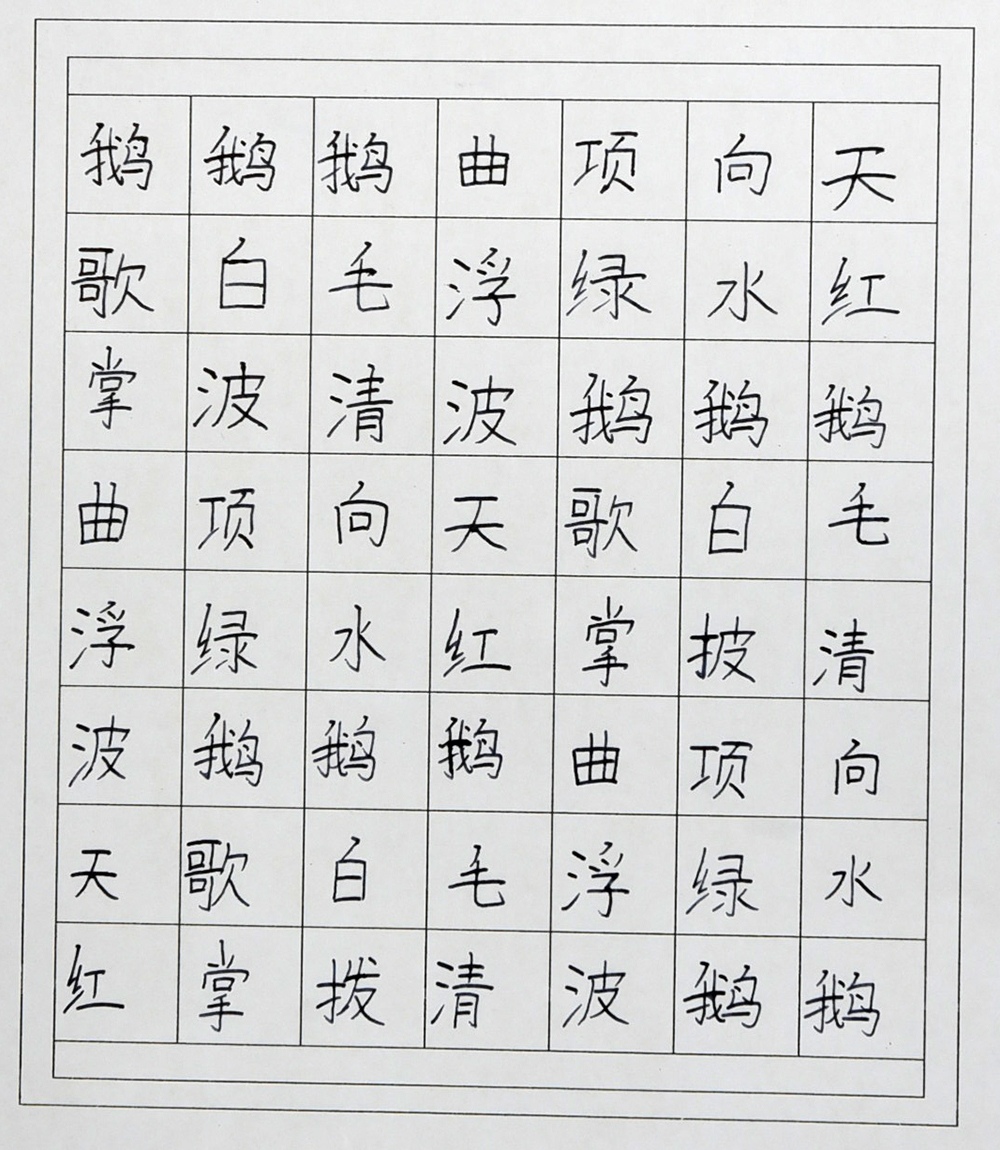 鹅鹅鹅曲项向天
歌白毛浮绿水红
掌波清波鹅鹅鹅
曲项向天歌白毛
浮绿水红掌披清
波鹅鹅鹅曲项向
天歌白毛浮绿水
红掌拨清波鹅鹅